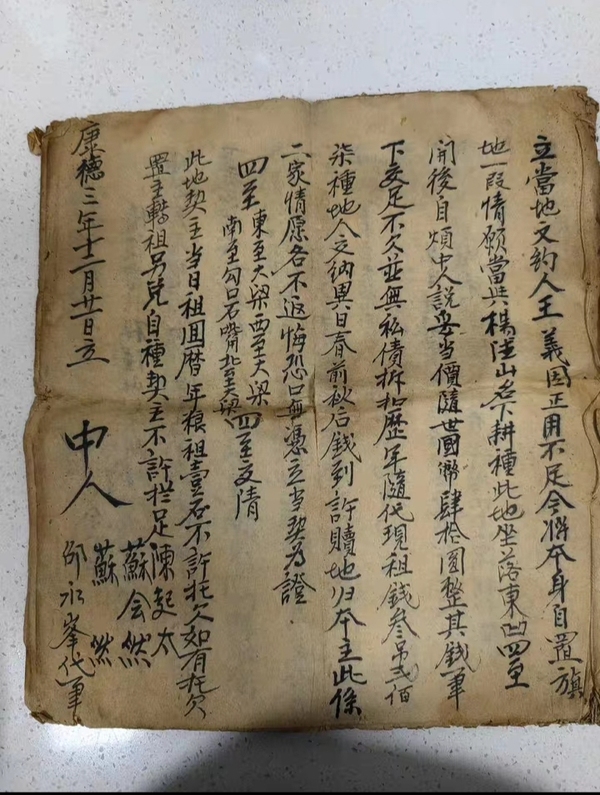 立當地文約人王義因正用不足今將本身自置旗
地一段情願當與楊陞山名下耕種此地坐落東凹四至
開後自煩中人說妥當價隨世國幣肆拾圓整其錢筆
下交足不欠並無私債折扣歷年隨代現租錢叁吊弍佰
柒種地人交納異日春前秋后錢到許贖地归本主此係
二家情愿各不返悔恐口無憑立當契為證
四至 東至大梁西至大梁
南至勾口石嘴北至大梁 四至交清
此地契主當日租回曆年粮租壹石不許托欠如有托欠
置主轉租另兌自種契主不許拦足
康德三年十二月廿日立
中人
陳起太
蘇会然
蘇然
邰永峯代筆